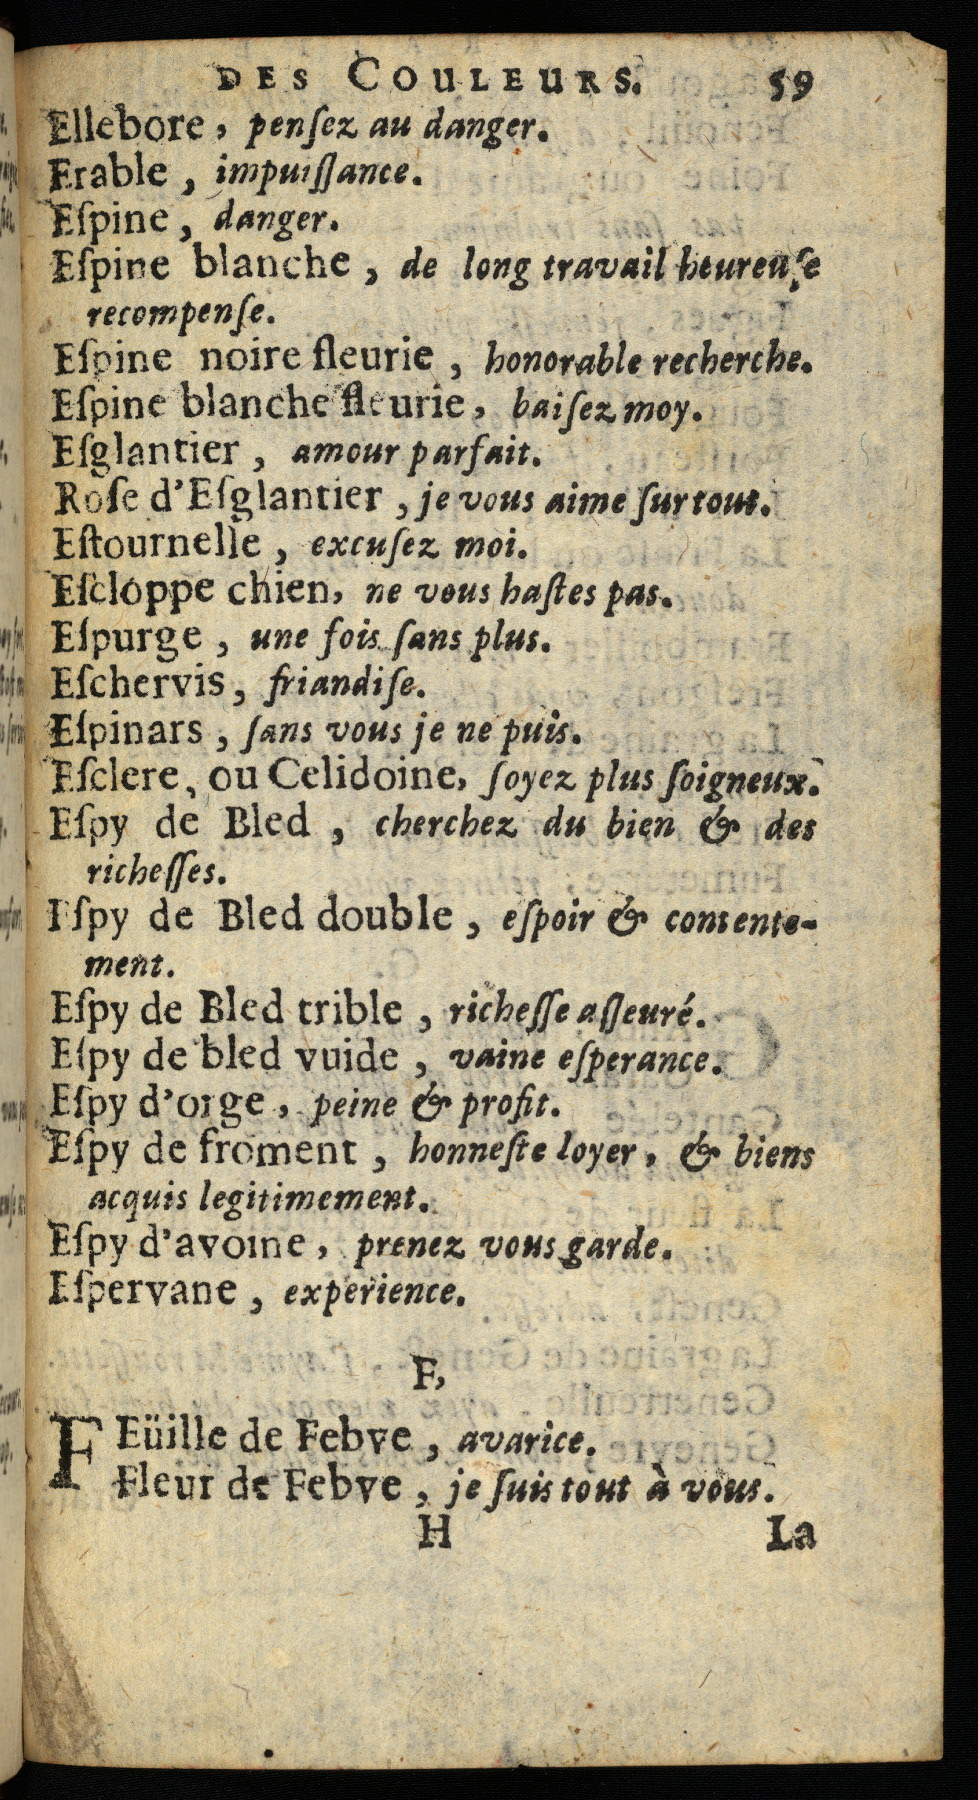 DES COULEURS. 59
Ellebore, penſez au danger.
Erable, impuiſſance.
Eſpine, danger.
Eſpine blanche, de long travail heureuſe
recompenſe.
Eſpine noire fleurie, honorable recherche.
Eſpine blanche fleurie, baiſez moy.
Eſglantier, amour parfait.
Roſe d'Eſglantier, je vous aime ſur tout.
Eſtournelle, excuſez moi.
Eſcloppe chien, ne vous haſtes pas.
Eſpurge, une fois ſans plus.
Eſchervis, friandiſe.
Eſpinars, ſans vous je ne puis.
Eſclere, ou Celidoine, ſoyez plus ſoigneux.
Eſpy de Bled, cherchez du bien & des
richeſſes.
Eſpy de Bled double, eſpoir & contente-
ment.
Eſpy de Bled trible, richeſſe aſſeuré.
Eſpy de bled vuide, vaine eſperance.
Eſpy d'orge, peine & profit.
Eſpy de froment, honneſte loyer, & biens
acquis legitimement.
Eſpy d'avoine, prenez vous garde.
Eſpervane, experience.
F,
FEüille de Febve, avarice.
Fleur de Febve, je ſuis tout à vous.
H La